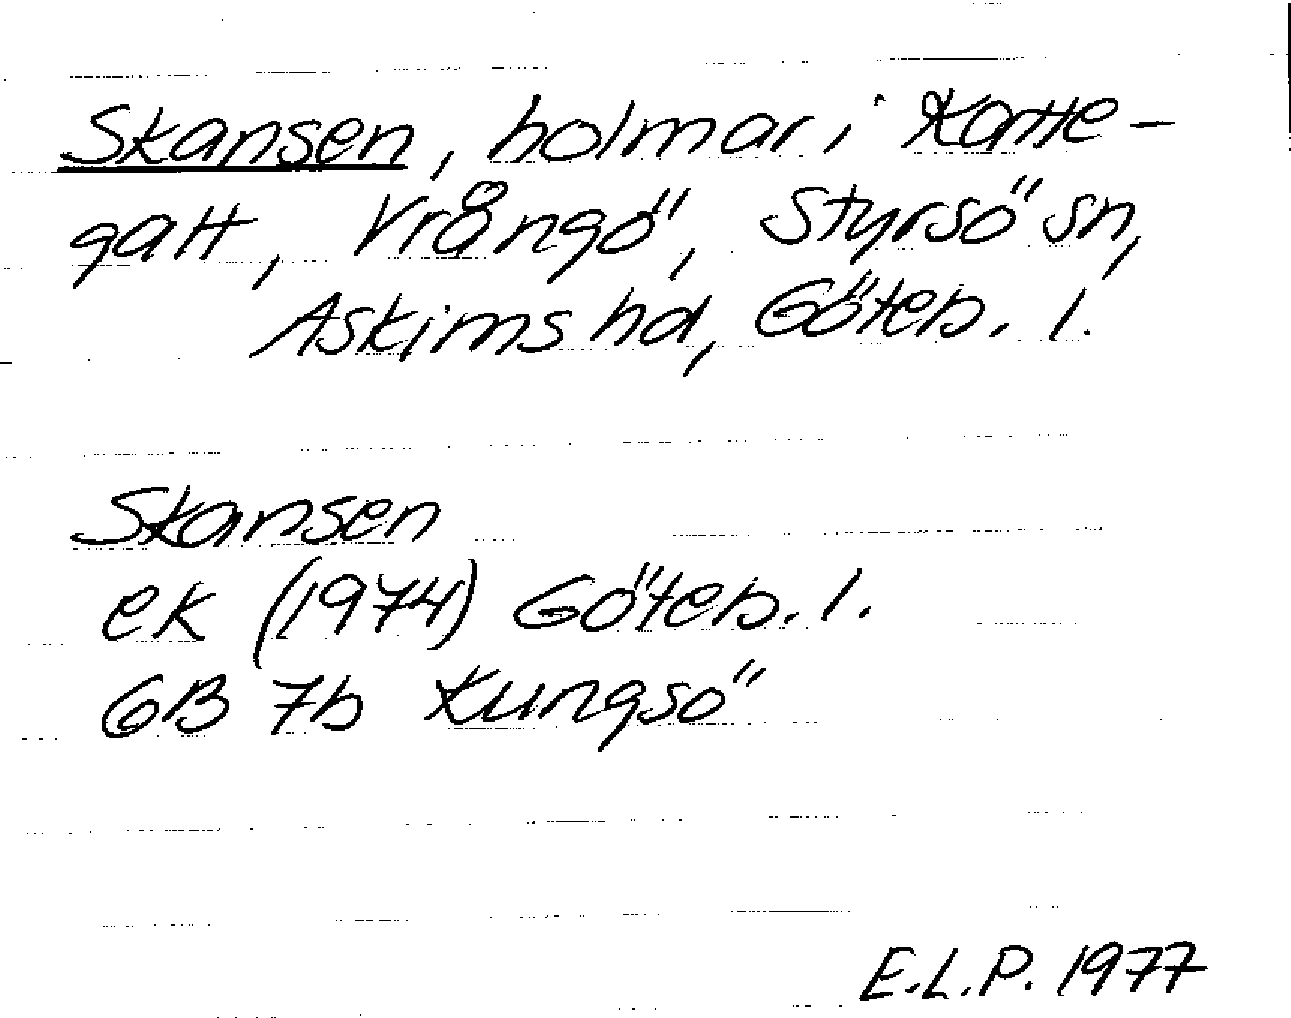 Skansen, holmar i Katte-
gatt, Vrångö, Styrsö sn,
Askims hd, Göteb. l.
Skansen
ek (1974) Göteb. l.
GB 7b Kungsö
E.L.P. 1977